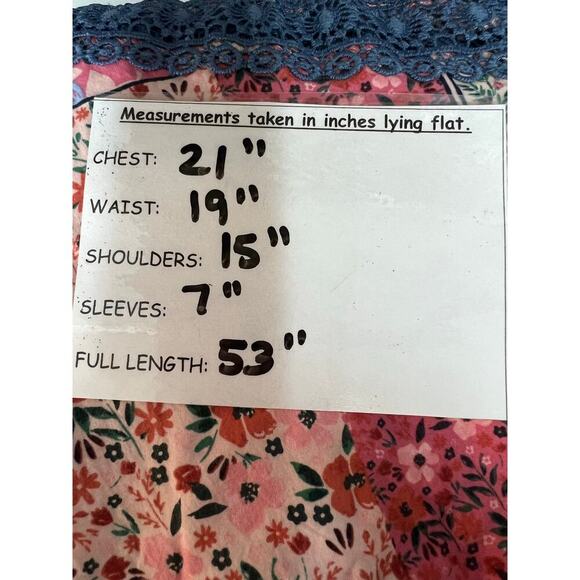 Measurements taken in inches lying flat.
CHEST: 21"
WAIST: 19"
SHOULDERS: 15"
SLEEVES: 7"
FULL LENGTH: 53"